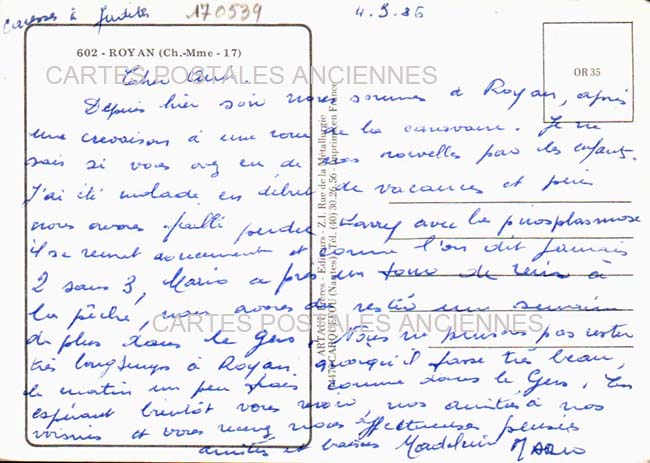 Caresses à Judith
170539
4.9.86
602 - ROYAN (Ch.-Mme - 17)
OR 35
CARTES POSTALES ANCIENNES
Cher Ami.
Depuis hier soir nous sommes à Royan, après
une crevaison à une roue de la caravane. Je ne
sais si vous avez eu de nos nouvelles par les enfants.
J'ai été malade en début de vacances et puis
nous avons failli perdre avec la piroplasmose
il se remet doucement et comme l'on dit jamais
2 sans 3, Mario a pris un tour de reins à
la pêche, nous avons dû rester une semaine
de plus dans le Gers. Nous ne pensons pas rester
CARTES POSTALES ANCIENNES
très longtemps à Royan, quoiqu'il fasse très beau,
le matin un peu frais comme dans le Gers. En
espérant bientôt vous revoir, nos amitiés à nos
voisins et vous recevez nos affectueuses pensées
amitiés et baisers Madeleine MARIO
ARTAUD Frères - Editeurs - Z.I. Rue de la Métallurgie
44470 CARQUEFOU (Nantes) Tél. (40) 30.26.56 - Imprimé en France